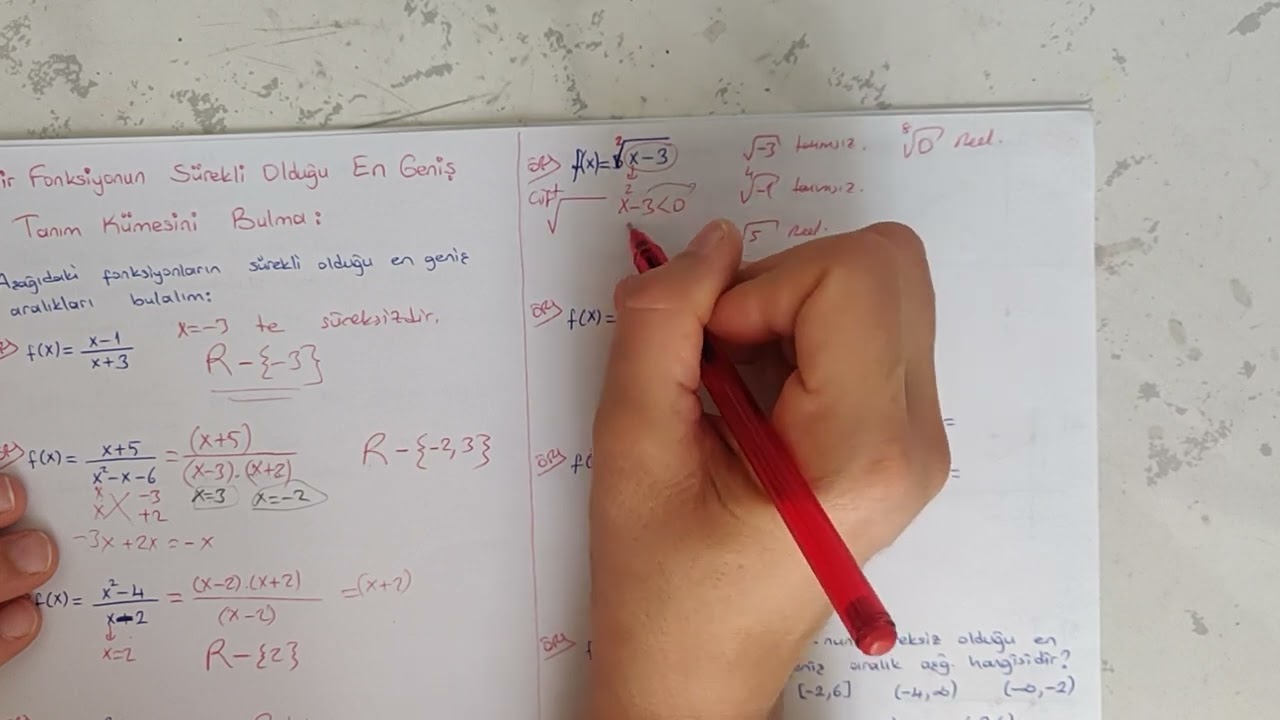 ir Fonksiyonun Sürekli Olduğu En Geniş
Tanım Kümesini Bulma:
Aşağıdaki fonksiyonların sürekli olduğu en geniş
aralıkları bulalım:
f(x) = x-1 / x+3
x=-3 te süreksizdir.
R-{-3}
f(x) = x+5 / x²-x-6 = (x+5) / (x-3).(x+2)
R-{-2,3}
x -3
x +2
x=3 x=-2
-3x+2x=-x
f(x) = x²-4 / x-2 = (x-2).(x+2) / (x-2) = (x+2)
x=2
R-{2}
ÖR) f(x)=²√x-3
Çift √
x-3<0
√-3 tanımsız.
⁴√-1 tanımsız.
√5 Reel.
⁸√0 Reel.
ÖR) f(x)=
=
ÖR)
=
ÖR)
olduğu en
aralık aşğ. hangisidir?
[-2,6] (-4,∞) (-∞,-2)